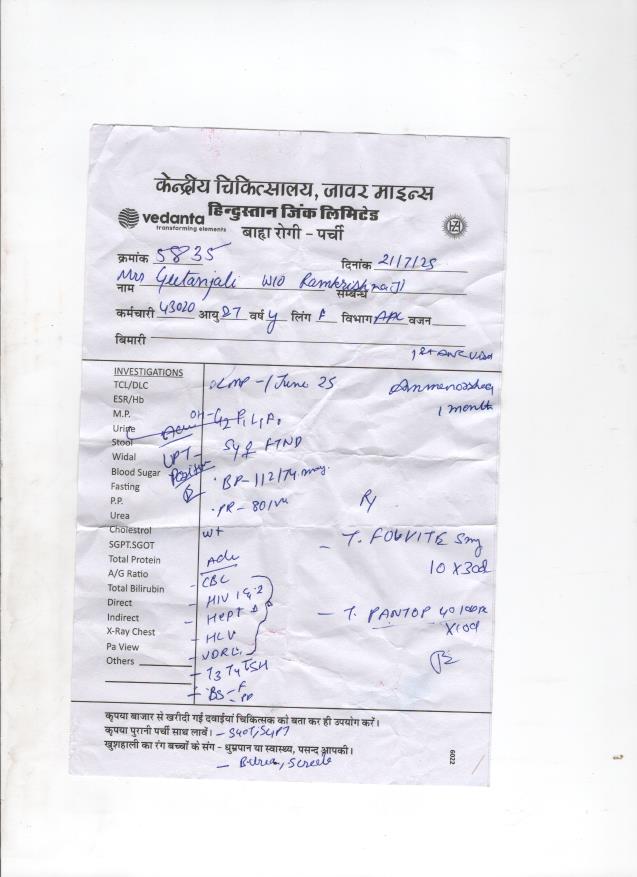 केन्द्रीय चिकित्सालय, जावर माइन्स
हिन्दुस्तान जिंक लिमिटेड
vedanta
transforming elements
बाह्य रोगी - पर्ची
क्रमांक 5835 दिनांक 21/7/25
Mrs Geetanjali W/O Ramkrishna(J)
नाम सम्बन्ध
कर्मचारी 43020 आयु 27 वर्ष y लिंग F विभाग वजन
बिमारी
1st ANC visit
INVESTIGATIONS
TCL/DLC LMP - 1 June 25
ESR/Hb 1 month
M.P. OH- G2 P1 L1 A0
Urine
Stool 5y FTND
Widal UPT-
Blood Sugar Positive BP- 112/74 mmg
Fasting
P.P. PR- 80/m Rx
Urea
Cholestrol wt
SGPT.SGOT - T. FOLVITE 5mg
Total Protein Adv 10 X 30d
A/G Ratio - CBC
Total Bilirubin
Direct - HIV 1 & 2
Indirect - HCV - T. PANTOP 40
X-Ray Chest X10d
Pa View - VDRL
Others - T3 T4 TSH
- BS- F
PP
कृपया बाजार से खरीदी गई दवाईयां चिकित्सक को बता कर ही उपयोग करें।
कृपया पुरानी पर्ची साथ लावें। - SGOT, SGPT
खुशहाली का रंग बच्चों के संग - धुम्रपान या स्वास्थ्य, पसन्द आपकी।
6022